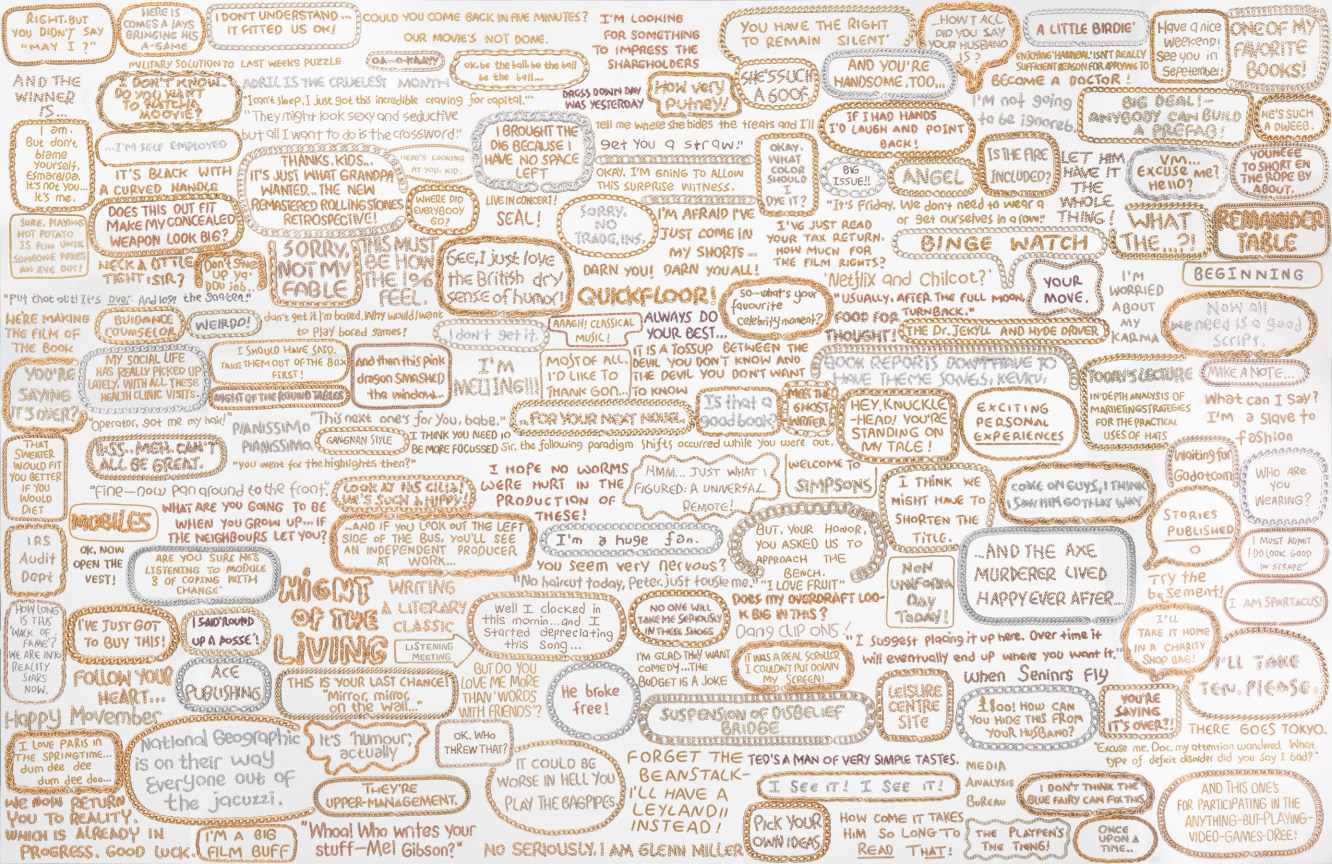 RIGHT, BUT
YOU DIDN'T SAY
"MAY I?"
HERE IS
COMES A JAYS
BRINGING HIS
A-GAME
I DON'T UNDERSTAND...
IT FITTED US OK!
COULD YOU COME BACK IN FIVE MINUTES?
OUR MOVIE'S NOT DONE.
I'M LOOKING
FOR SOMETHING
TO IMPRESS THE
SHAREHOLDERS
YOU HAVE THE RIGHT
TO REMAIN SILENT'
DID YOU SAY
YOUR HUSBAND
A LITTLE BIRDIE'
Have a nice
weekend!
See you in
September!
ONE OF MY
FAVORITE
BOOKS!
MILITARY SOLUTION TO LAST WEEKS PUZZLE
ok. be the ball be the ball
be the ball...
AND YOU'RE
HANDSOME, TOO...
ENJOYING 'HANNIBAL' ISN'T REALLY
SUFFICIENT REASON FOR APPLYING TO
BECOME A DOCTOR!
AND THE
WINNER
IS...
I DON'T KNOW.
DO YOU WANT
TO WATCH A
MOOVIE?
APRIL IS THE CRUELEST MONTH
"I can't sleep. I just got this incredible craving for capital."
"They might look sexy and seductive
but all I want to do is the crossword."
DRESS DOWN DAY
WAS YESTERDAY
How very
Putney!
SHE'S SUCH
A GOOF.
I'm not going
to be ignored.
BIG DEAL!-
ANYBODY CAN BUILD
A PREFAB!
HE'S SUCH
A DWEEB.
I am.
But don't
blame
yourself,
Esmarelda.
It's not you...
It's me.
...I'M SELF EMPLOYED
IT'S BLACK WITH
A CURVED HANDLE
THANKS, KIDS...
IT'S JUST WHAT GRANDPA
WANTED... THE NEW
REMASTERED ROLLING STONES
RETROSPECTIVE!
HERE'S LOOKING
AT YOU, KID.
I BROUGHT THE
DIG BECAUSE I
HAVE NO SPACE
LEFT
Tell me where she hides the treats and I'll
get you a straw."
OKAY. I'M GOING TO ALLOW
THIS SURPRISE WITNESS.
OKAY.
WHAT
COLOR
SHOULD
I
DYE IT?
IF I HAD HANDS
I'D LAUGH AND POINT
BACK!
BIG
ISSUE!!
ANGEL
IS THE FIRE
INCLUDED?
LET HIM
HAVE IT
THE
WHOLE
THING!
UM...
EXCUSE me?
Hello?
SURE, PLAYING
HOT POTATO
IS FUN UNTIL
SOMEONE POKES
AN EYE OUT!
DOES THIS OUTFIT
MAKE MY CONCEALED
WEAPON LOOK BIG?
WHERE DID
EVERYBODY
GO?
LIVE IN CONCERT!
SEAL!
SORRY,
NO
TRADE INS.
I'M AFRAID I'VE
JUST COME IN
MY SHORTS...
I'VE JUST READ
YOUR TAX RETURN.
HOW MUCH FOR
THE FILM RIGHTS?
"It's Friday. We don't need to wear a
or get ourselves in a row."
BINGE WATCH
WHAT
THE...?!
REMAINDER
TABLE
NECK A LITTLE
TIGHT SIR?
SORRY,
NOT MY
FABLE
THIS MUST
BE HOW
THE 1%
FEEL.
Gee, I just love
the British dry
sense of humor!
DARN YOU! DARN YOU ALL!
QUICKFLOOR!
so-what's your
favourite
celebrity moment?
'Netflix and Chilcot?'
"USUALLY, AFTER THE FULL MOON,
TURN BACK."
FOOD FOR
THOUGHT!
YOUR
MOVE.
I'M
WORRIED
ABOUT
MY
KARMA
BEGINNING
"Put that out! It's over. And lose the goatee."
WE'RE MAKING
THE FILM OF
THE BOOK
GUIDANCE
COUNSELOR.
WEIRDO!
don't get it. I'm bored. Why would I want
to play bored games!
I don't get it.
AAAGH! CLASSICAL
MUSIC!
ALWAYS DO
YOUR BEST...
THE Dr. JEKYLL AND HYDE DRIVER
Now all
we need is a good
script.
YOU'RE
SAYING
IT'S OVER?
MY SOCIAL LIFE
HAS REALLY PICKED UP
LATELY, WITH ALL THESE
HEALTH CLINIC VISITS.
I SHOULD HAVE SAID,
TAKE THEM OUT OF THE BOX
FIRST!
KNIGHT OF THE ROUND TABLES
and then this pink
dragon SMASHED
the window...
I'M
MELTING!!!
MOST OF ALL,
I'D LIKE TO
THANK GOD...
IT IS A TOSSUP BETWEEN THE
DEVIL YOU DON'T KNOW AND
THE DEVIL YOU DON'T WANT
TO KNOW
BOOK REPORTS DON'T HAVE TO
HAVE THEME SONGS, KEVIN.
TODAY'S LECTURE
IN DEPTH ANALYSIS OF
MARKETING STRATEGIES
FOR THE PRACTICAL
USES OF HATS
MAKE A NOTE...
What can I say?
I'm a slave to
fashion
"Operator, got me my hair!"
PIANISSIMO
PIANISSIMO.
"This next one's for you, babe."
GANGNAM STYLE
I THINK YOU NEED TO
BE MORE FOCUSSED
...FOR YOUR NEXT MOVIE...
Sir, the following paradigm shifts occurred while you were out.
Is that a
good book?
MEET THE
GHOST
WRITER
HEY, KNUCKLE
-HEAD! YOU'RE
STANDING ON
MY TALE!
EXCITING
PERSONAL
EXPERIENCES
THAT
SWEATER
WOULD FIT
YOU BETTER
IF YOU
WOULD
DIET
H:SS.. MEH. CAN'T
ALL BE GREAT.
"you went for the highlights then?"
"Fine-now pan around to the front."
LOOK AT HIS GILLS!
HE'S SUCH A HIPPY!
I HOPE NO WORMS
WERE HURT IN THE
PRODUCTION OF
THESE!
HMM... JUST WHAT I
FIGURED: A UNIVERSAL
REMOTE!
WELCOME TO
SIMPSONS
I THINK WE
MIGHT HAVE TO
SHORTEN THE
TITLE.
COME ON GUYS, I THINK
I SAW HIM GO THAT WAY
Waiting for
Godot.com
WHO ARE
YOU
WEARING?
MOBILES
WHAT ARE YOU GOING TO BE
WHEN YOU GROW UP... IF
THE NEIGHBOURS LET YOU?
...AND IF YOU LOOK OUT THE LEFT
SIDE OF THE BUS, YOU'LL SEE
AN INDEPENDENT PRODUCER
AT WORK...
I'm a huge fan.
you seem very nervous?
BUT, YOUR HONOR,
YOU ASKED US TO
APPROACH THE
BENCH.
STORIES
PUBLISHED
O
I MUST ADMIT
I DO LOOK GOOD
IN STRAPE"
IRS
Audit
Dept
OK, NOW
OPEN THE
VEST!
ARE YOU SURE HE'S
LISTENING TO MODULE
3 OF COPING WITH
CHANGE'
NIGHT
OF THE
LiViNG
WRITING
A LITERARY
CLASSIC
"No haircut today, Peter, just tousle me."
"I LOVE FRUIT"
DOES MY OVERDRAFT LOO-
K BIG IN THIS?
NON
UNIFORM
Day
Today!
...AND THE AXE
MURDERER LIVED
HAPPY EVER AFTER...
Try the
basement!
I AM SPARTACUS!
HOW LONG
IS THIS
'WALK OF
FAME'?
WE ARE INTO
REALITY
STARS
NOW.
I'VE JUST GOT
TO BUY THIS!
I SAID 'ROUND
UP A POSSE'!
LISTENING
MEETING
Well I clocked in
this mornin'...and I
Started depreciating
this Song...
NO ONE WILL
TAKE ME SERIOUSLY
IN THESE SHOES
Dang CLIP ONS!
"I suggest placing it up here. Over time it
will eventually end up where you want it."
I'LL
TAKE IT HOME
IN A CHARITY
SHOP BAG!
I'LL TAKE
TEN, PLEASE.
FOLLOW YOUR
HEART...
ACE
PUBLISHING
THIS IS YOUR LAST CHANCE!
"Mirror, mirror,
on the wall..."
BUT DO YOU
LOVE ME MORE
THAN 'WORDS
WITH FRIENDS'?
He broke
free!
I'M GLAD THEY WANT
COMEDY...THE
BUDGET IS A JOKE
IT WAS A REAL SCROLLER
I COULDN'T PUT DOWN
MY SCREEN!
LEISURE
CENTRE
SITE
When Seniors Fly
£800! HOW CAN
YOU HIDE THIS FROM
YOUR HUSBAND?
YOU'RE
SAYING
IT'S OVER?!
Happy Movember
I LOVE PARIS IN
THE SPRINGTIME...
dum dee dee
dum dee doo...
National Geographic
is on their way
Everyone out of
the jacuzzi.
It's 'humour,'
actually
OK. WHO
THREW THAT?
SUSPENSION OF DISBELIEF
BRIDGE
THERE GOES TOKYO.
"Excuse me, Doc, my attention wandered. What
type of deficit disorder did you say I had?"
THEY'RE
UPPER-MANAGEMENT.
IT COULD BE
WORSE IN HELL YOU
PLAY THE BAGPIPES.
FORGET THE
BEANSTALK-
I'LL HAVE A
LEYLANDII
INSTEAD!
TED'S A MAN OF VERY SIMPLE TASTES.
I SEE IT! I SEE IT!
MEDIA
ANALYSIS
Bureau
I DON'T THINK THE
BLUE FAIRY CAN FIX THIS
AND THIS ONE'S
FOR PARTICIPATING IN THE
ANYTHING-BUT-PLAYING-
VIDEO-GAMES-OREE!
WE NOW RETURN
YOU TO REALITY.
WHICH IS ALREADY IN
PROGRESS. GOOD LUCK.
I'M A BIG
FILM BUFF
"Whoa! Who writes your
stuff-Mel Gibson?"
NO SERIOUSLY, I AM GLENN MILLER
PICK YOUR
OWN IDEAS
HOW COME IT TAKES
HIM SO LONG TO
READ THAT!
THE PLAYPEN'S
THE THING!
ONCE
UPON A
TIME...